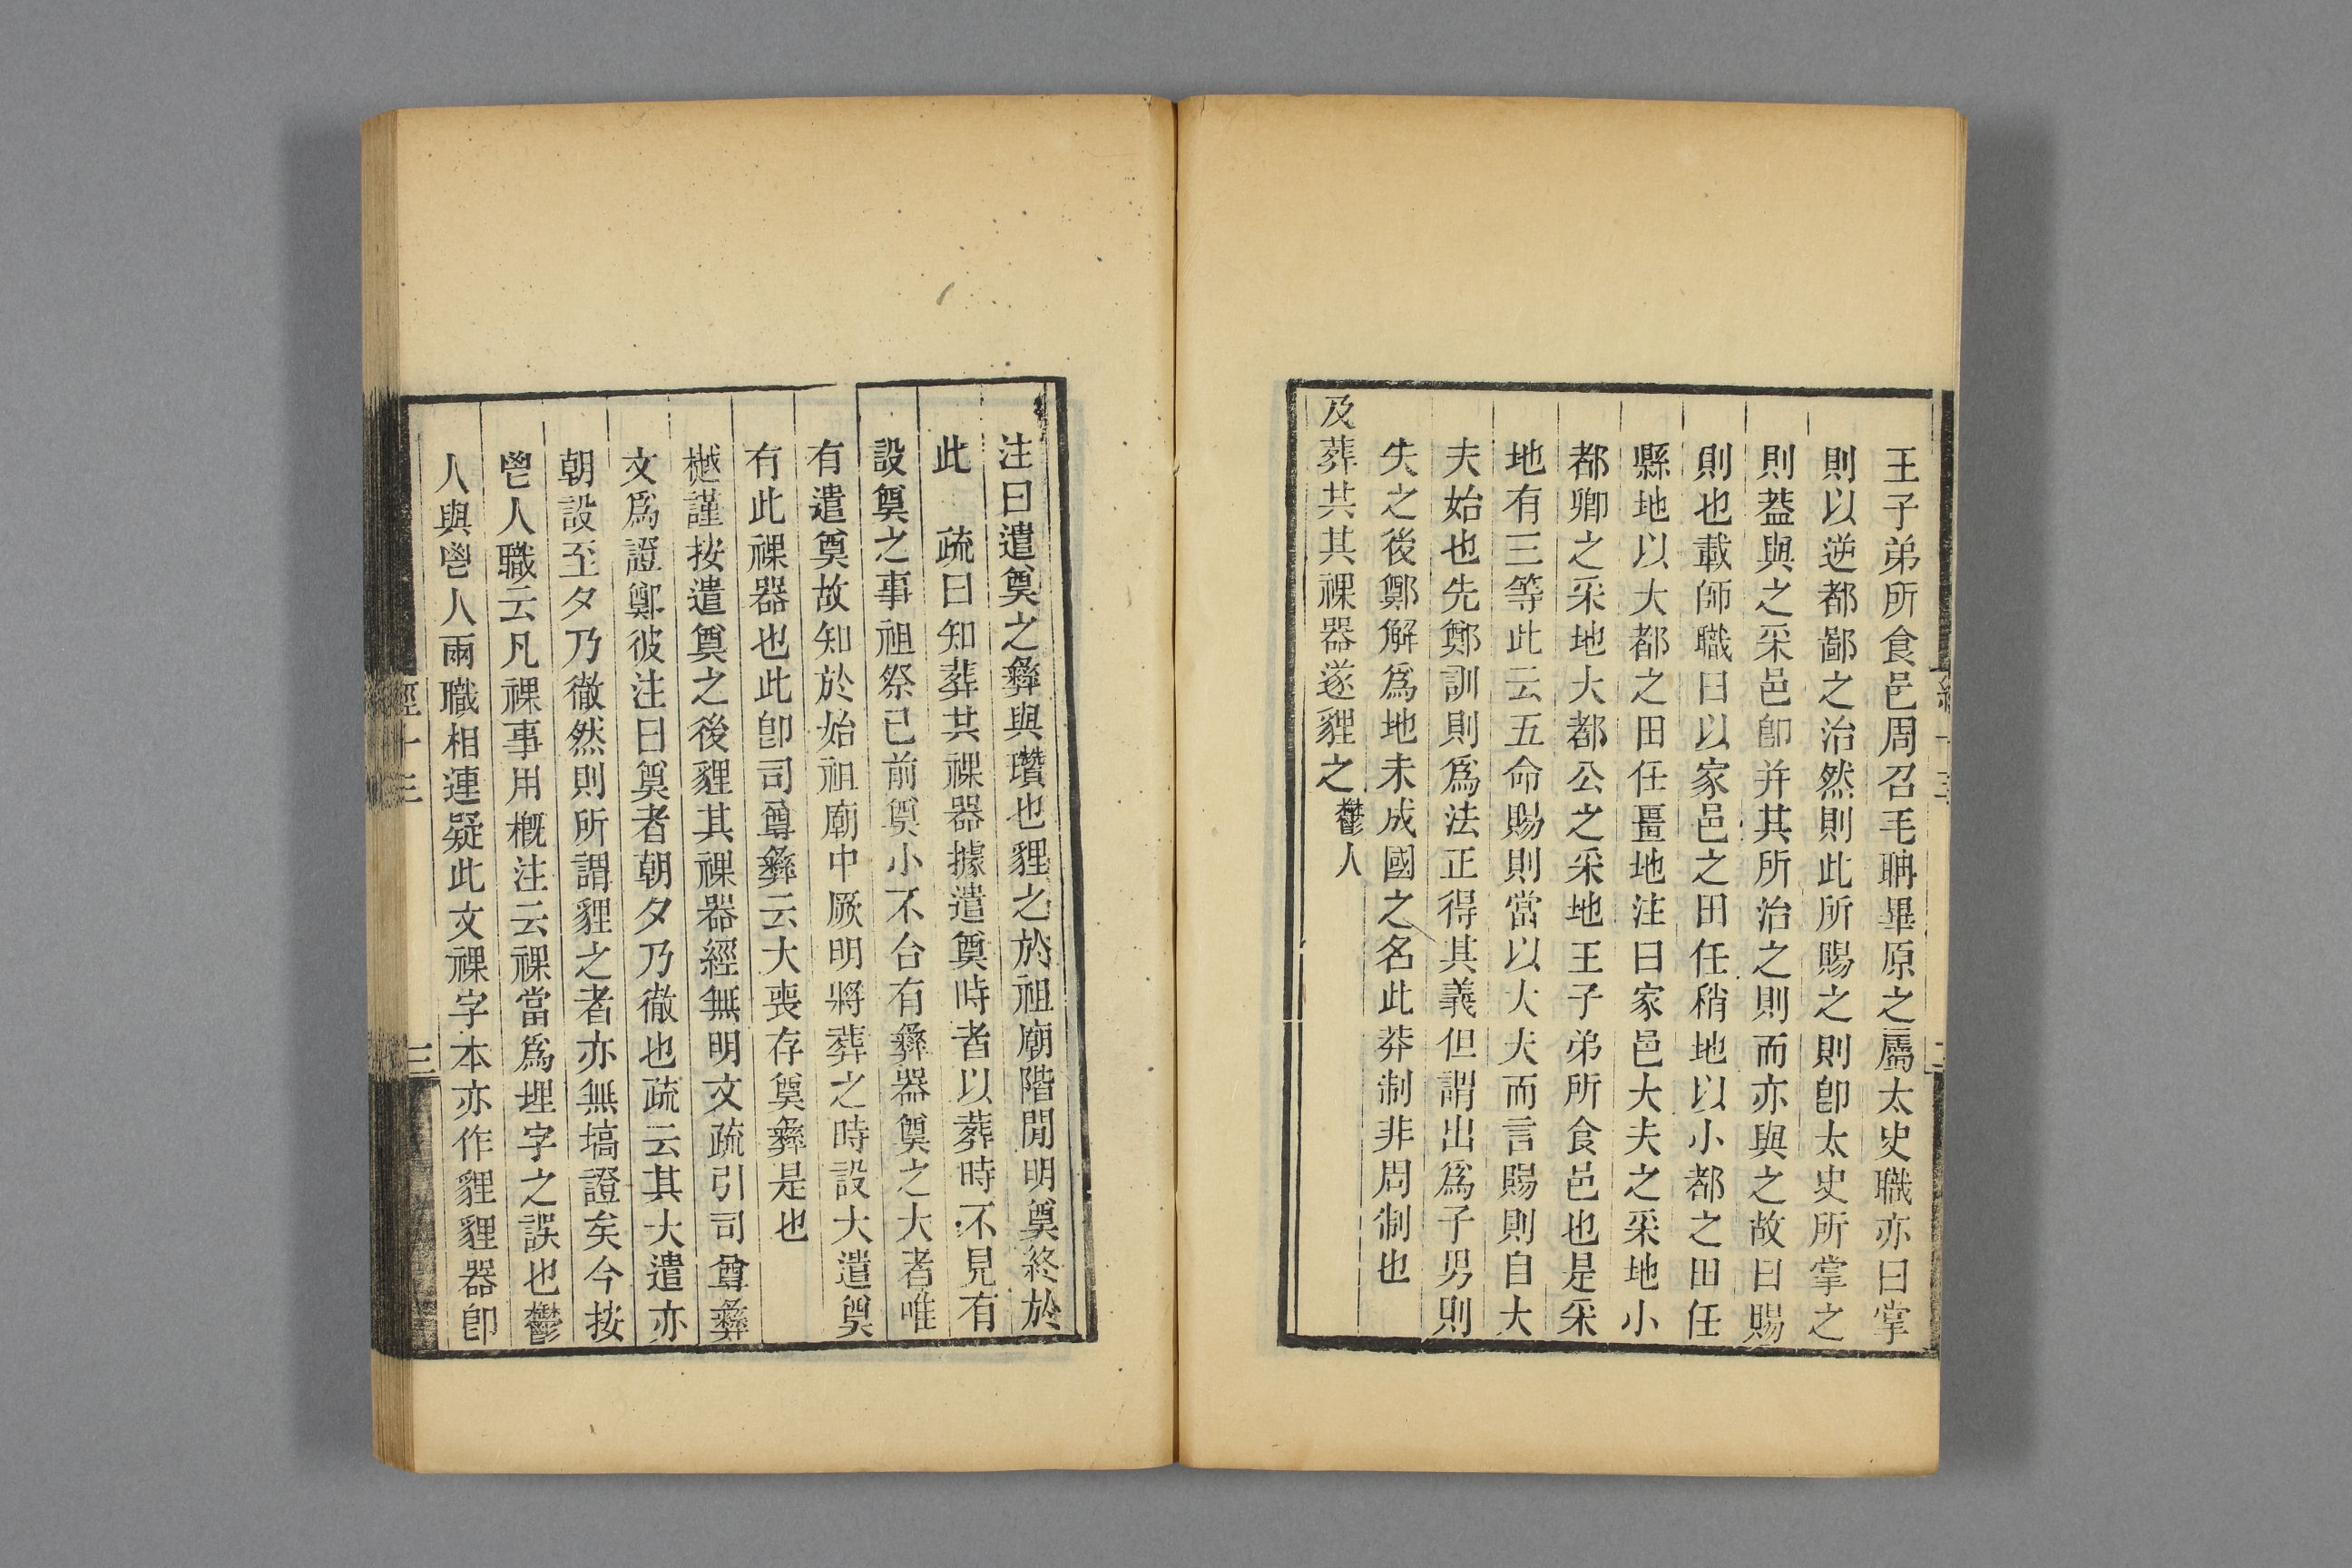 王子弟所食邑周召毛聃畢原之屬太史職亦曰掌
則以逆都鄙之治然則此所賜之則卽太史所掌之
則蓋與之采邑卽并其所治之則而亦與之故曰賜
則也載師職曰以家邑之田任稍地以小都之田任
縣地以大都之田任畺地注曰家邑大夫之采地小
都卿之采地大都公之采地王子弟所食邑也是采
地有三等此云五命賜則當以大夫而言賜則自大
夫始也先鄭訓則爲法正得其義但謂出爲子男則
失之後鄭解爲地未成國之名此莽制非周制也
及葬共其祼器遂貍之鬱人
注曰遣奠之彝與瓚也貍之於祖廟階閒明奠終於
此 疏曰知葬共祼器據遣奠時者以葬時不見有
設奠之事祖祭已前奠小不台有彝器奠之大者唯
有遣奠故知於始祖廟中厥明將葬之時設大遣奠
有此祼器也此卽司尊彝云大喪存奠彝是也
樾謹按遣奠之後貍其祼器經無明文疏引司尊彝
文爲證鄭彼注曰奠者朝夕乃徹也疏云其大遣亦
朝設至夕乃徹然則所謂貍之者亦無塙證矣今按
鬯人職云凡祼事用槪注云祼當爲埋字之誤也鬱
人與鬯人兩職相連疑此文祼字本亦作貍貍器卽
經十三
三